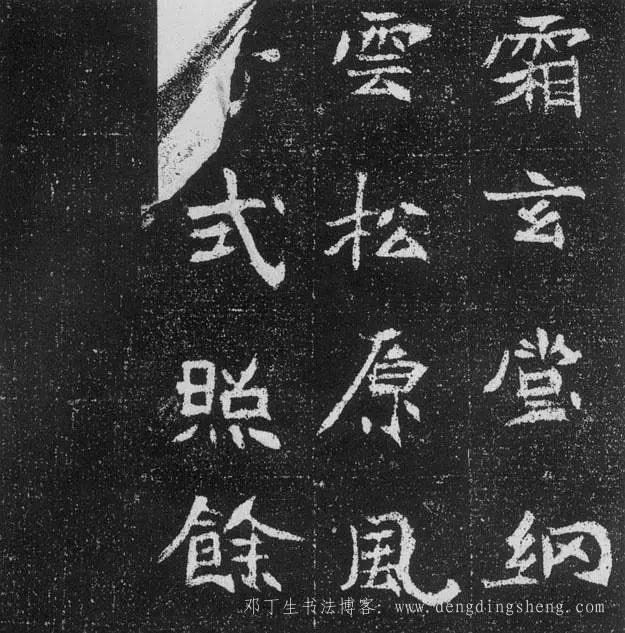 霜玄堂網
雲松原風
式照餘
邓丁生书法博客: www.dengdingsheng.com/